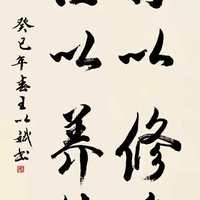 以修
以养
癸巳年春王以斌书